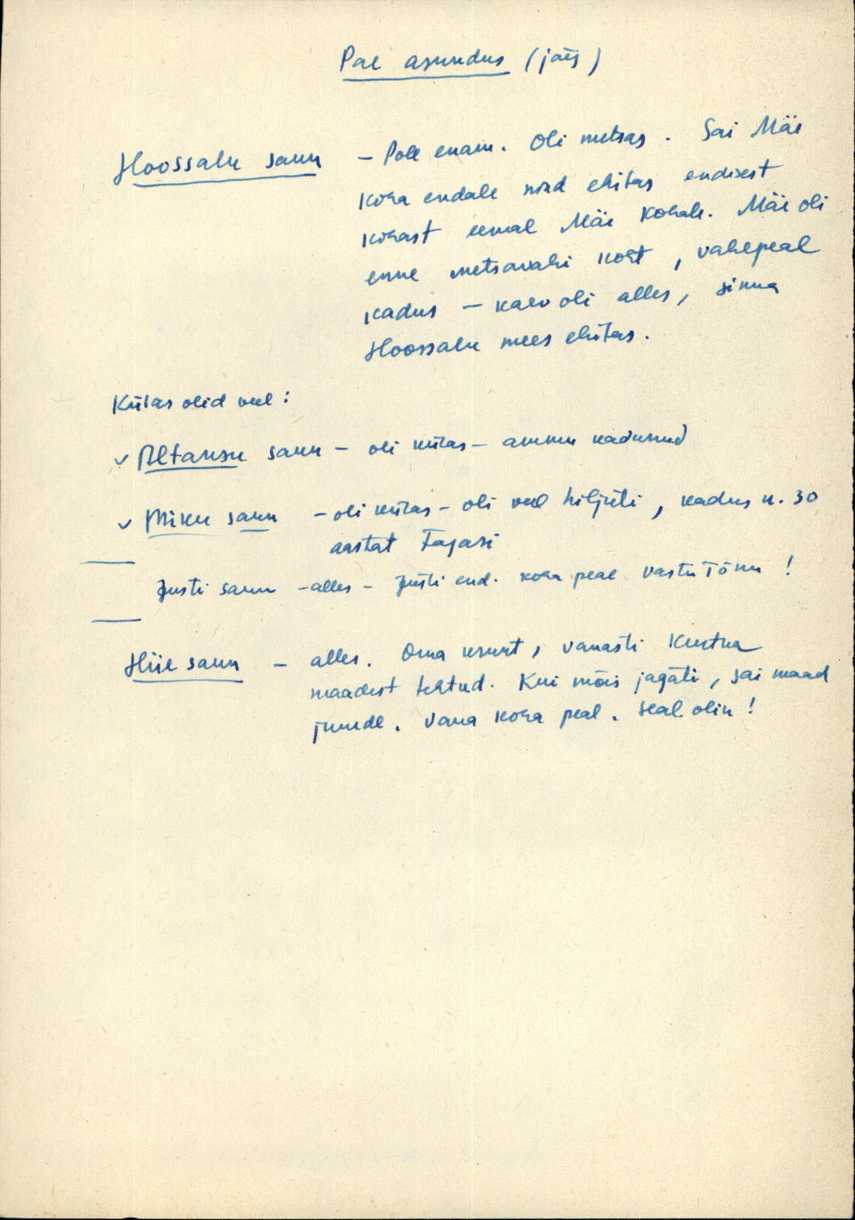 Pae asundus (järg)
Hoossalu saun – Pole enam. Oli metsas. Sai Mäe
koha endale nüüd ehitas endisest
kohast eemal Mäe kohale. Mäe oli
enne metsavahi koht, vahepeal
kadus – kaev oli alles, sinna
Hoossalu mees ehitas.
Külas olid veel:
✓ Altansu saun – oli külas – ammu kadunud
✓ Miku saun – oli külas – oli veel hiljuti, kadus u. 30
aastat tagasi
Justi saun – alles – Justi end. koha peal vastu Tõnu!
Hiie saun – alles. Oma, vanasti Kustna
maadest tehtud. Kui mõis jagati, sai maad
juurde. Vana koha peal. Seal olin!